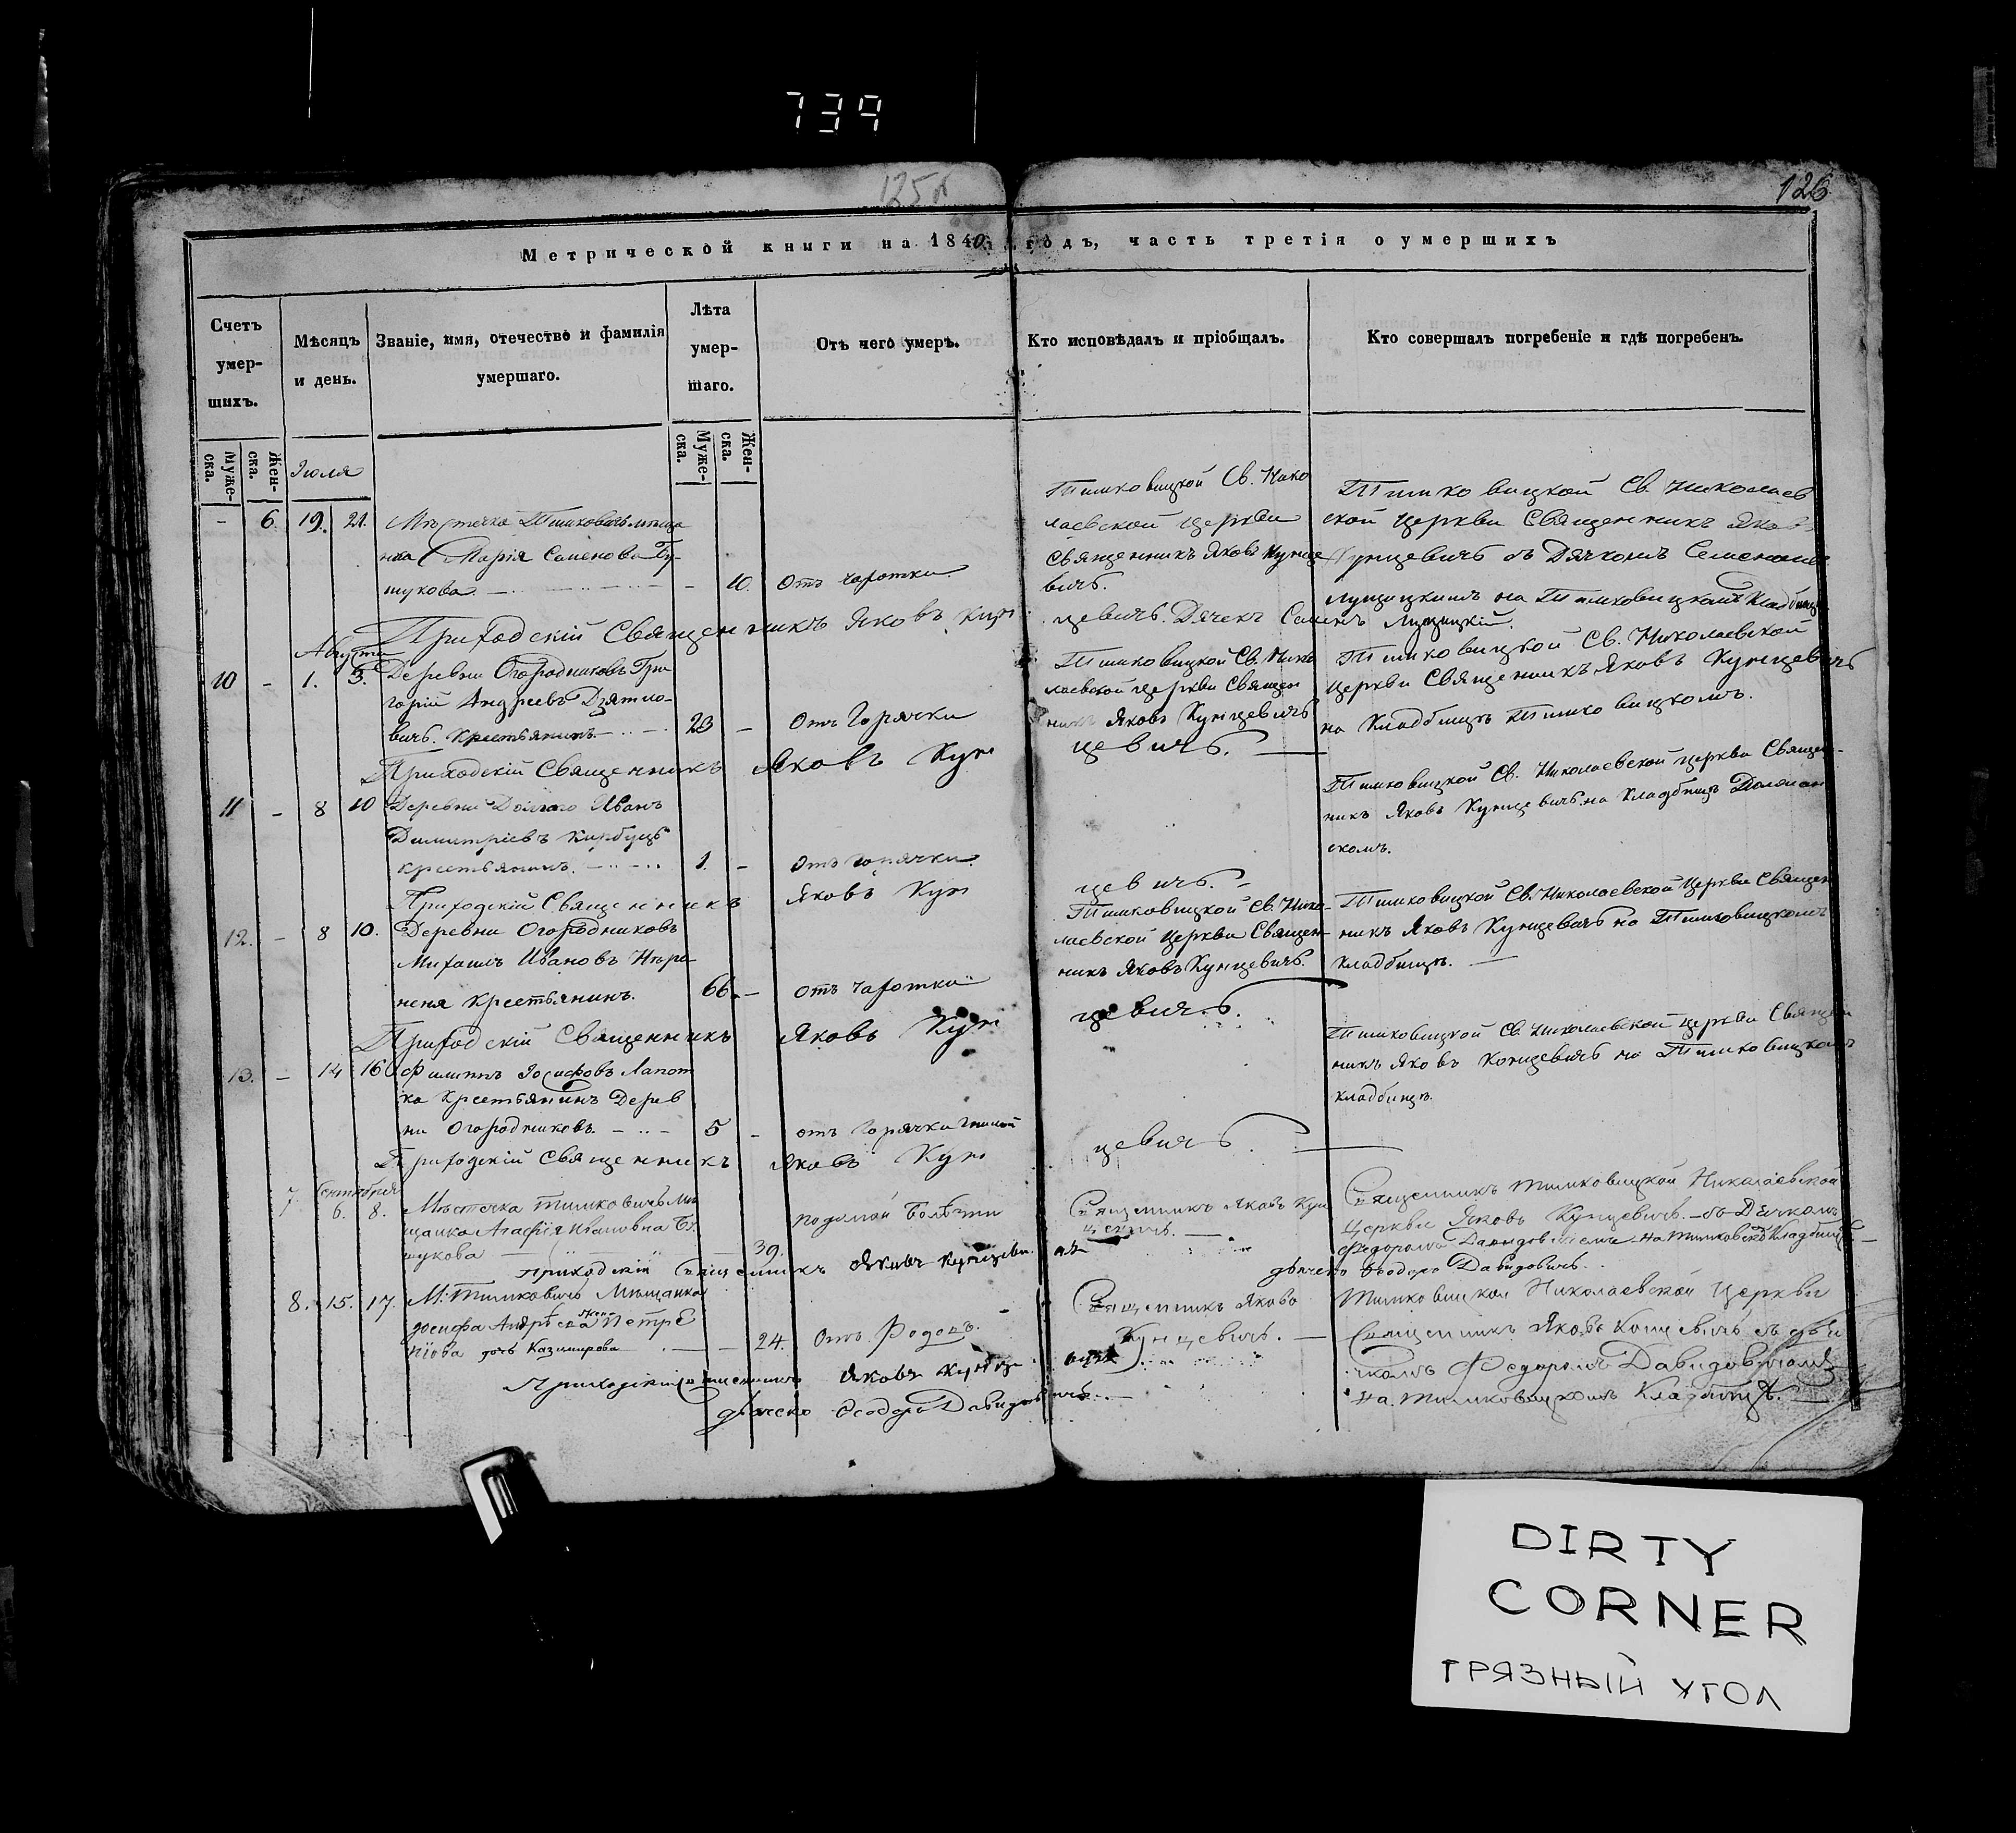 739
125
126
Метрической книги на 1840й годъ, часть третія о умершихъ
Счетъ умер-шихъ.
Мѣсяцъ и день.
Званіе, имя, отечество и фамилія умершаго.
Лѣта умер-шаго.
Отъ чего умеръ.
Кто исповѣдалъ и пріобщалъ.
Кто совершалъ погребеніе и гдѣ погребенъ.
Муже-ска.
Жен-ска.
Муже-ска.
Жен-ска.
Іюля
- 6. 19. 21.
Мѣстечка Тимковичь мѣща
нка Марія Семенова Бу-
шукова — 10. Отъ чахотки.
Тимковицкой Св. Нико
лаевской Церкви
Священникъ Яковъ Кунце
вичь.
Тимковицкой Св. Николаев
ской Церкви Священникъ Яковъ
Кунцевичь съ Дячкомъ Семеномъ
на Тимковицкомъ Кладбищѣ
Приходскій Священникъ Яковъ Кун цевичь. Дячекъ Семенъ
Августа
10 - 1. 3. Деревни Огородниковъ Гри
горій Андреевъ Дзятло-
вичь. Крестьянинъ. 23 - Отъ Горячки
Тимковицкой Св. Нико
лаевской Церкви Священ
никъ Яковъ Кунцевичь
Тимковицкой Св. Николаевской
Церкви Священникъ Яковъ Кунцевичь
на Кладбищѣ Тимковицкомъ.
Приходскій Священникъ Яковъ Кун цевичь.
11 - 8 10 Деревни Иванъ
Димитріевъ
крестьянинъ. 1. - Отъ горячки.
Тимковицкой Св. Николаевской церкви Священ-
никъ Яковъ Кунцевичь на Кладбищѣ
скомъ.
Приходскій Священникъ Яковъ Кун цевичь.
12. - 8 10. Деревни Огородниковъ
Михаилъ Ивановъ
неня Крестьянинъ. 66. - отъ чахотки
Тимковицкой Св. Нико-
лаевской Церкви Священ-
никъ Яковъ Кунцевичь.
Тимковицкой Св. Николаевской Церкви Священ
никъ Яковъ Кунцевичь на Тимковицкомъ
Кладбищѣ.
Приходскій Священникъ Яковъ Кун цевичь.
13. - 14 16 Филиппъ Іосифовъ Лапот
ка Крестьянинъ Дерев
ни Огородниковъ. 5 - отъ Горячки
Тимковицкой Св. Николаевской Церкви Священ
никъ Яковъ Концевичь на Тимковицкомъ
Кладбищѣ.
Приходскій Священникъ Яковъ Кун цевичь.
Сентября
7. 6. 8. Мѣстечка Тимковичь Мѣ
щанка Агафія Ивановна Бу
шукова 39.
Священникъ Яковъ Кун
цевичь.
Священникъ Тимковицкой Николаевской
Церкви Яковъ Кунцевичь. съ Дьячкомъ
Федоромъ Давидовичемъ на Тимковскомъ Кладбищѣ
Приходскій Священникъ Яковъ Кунцевичь
дьячекъ Ѳеодоръ Давидовичь.
8. 15. 17. М. Тимковичь Мѣщанка
Іосифа Андреева жена Петро
дочь Казимирова 24. Отъ Родовъ.
Священникъ Яковъ
Кунцевичь.
Тимковицкой Николаевской Церкви
Священникъ Яковъ Концевичь съ дья
чкомъ Федоромъ Давидовичомъ
на Тимковицкомъ Кладбищѣ.
Приходскій Священникъ Яковъ Кунце вичь
дьячекъ Ѳеодоръ Давидовичь.
DIRTY
CORNER
ГРЯЗНЫЙ УГОЛ